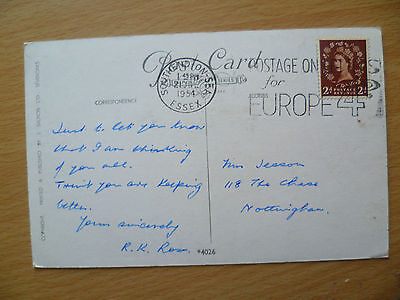 Post Card
CORRESPONDENCE
ADDRESS
SOUTHEND-ON-SEA
1954
ESSEX
POSTAGE ON
for
EUROPE 4
2d 2d
Just to let you know
that I am thinking
of you all.
Trust you are keeping
better.
Yours sincerely
R.K. Ross.
Mrs Jesson
118 The Chase
Nottingham.
4026
COPYRIGHT